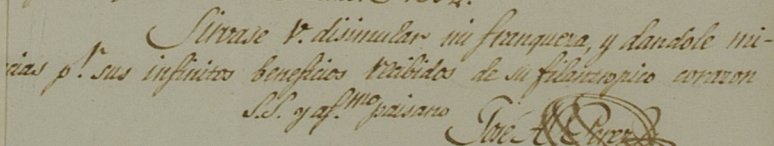 Sirvase V. disimular mi franqueza, y dandole mi-
cias pr. sus infinitos beneficios recibidos de su filantropico corazon
S.S. y af.mo paisano
José A. Perez